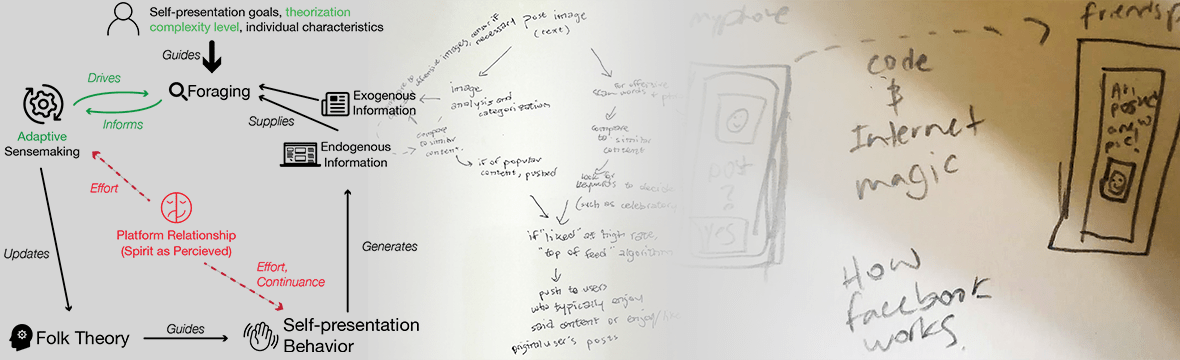 Self-presentation goals, theorization
complexity level, individual characteristics
Guides
Drives
Foraging
Informs
Supplies
Exogenous
Information
Adaptive
Sensemaking
Endogenous
Information
Effort
Platform Relationship
(Spirit as Percieved)
Updates
Effort,
Continuance
Generates
Folk Theory
Guides
Self-presentation
Behavior
offensive images, censor if
necessary
post image
(text)
image
analysis and
categorization
compare
to similar
content
is of popular
content, pushed
for offensive
scan words
compare
to similar
content
look for
keywords to
(such as celebratory
if "liked" at high rate,
"top of feed" algorithm
push to users
who typically enjoy
said content or enjoy
original user's posts
my phone
post
?
yes
code
$
Internet
magic
friends
posted
a new
pic!
How
facebook
works.